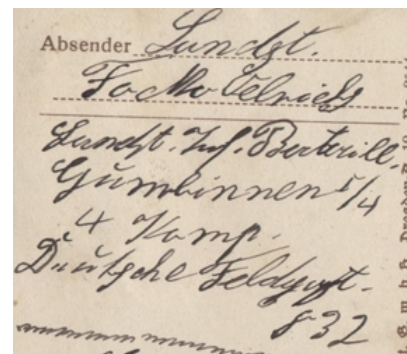 Absender Landst.
Fokko Oelrichs
Landst. Inf. Battaill.
Gumbinnen I/4
4 Komp.
Deutsche Feldpost.
832